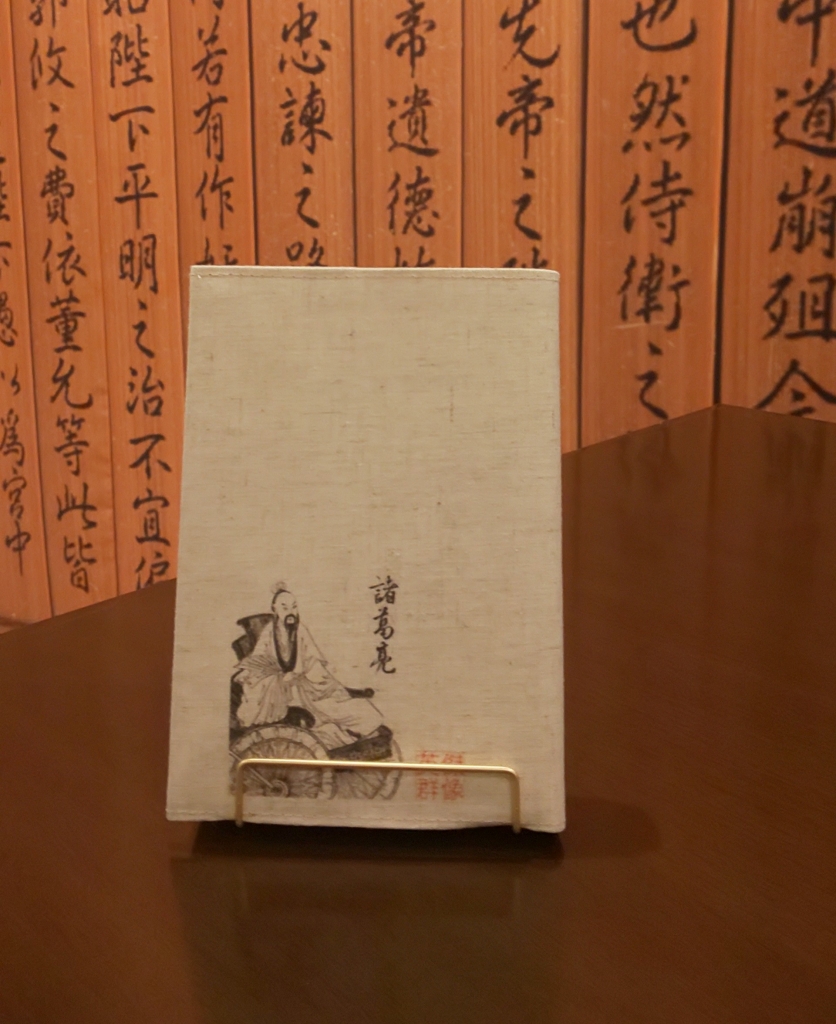 中道崩殂今
也然侍衛之
先帝之
帝遺德
忠諫之路
若有作
陛下平明之治不宜
郭攸之費依董允等此皆
愚以為宮中
諸葛亮
英傑
群像